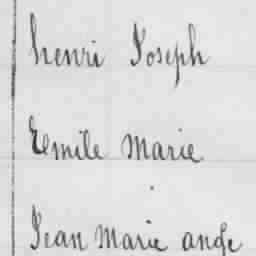 henri Joseph
Emile Marie
Jean Marie ange